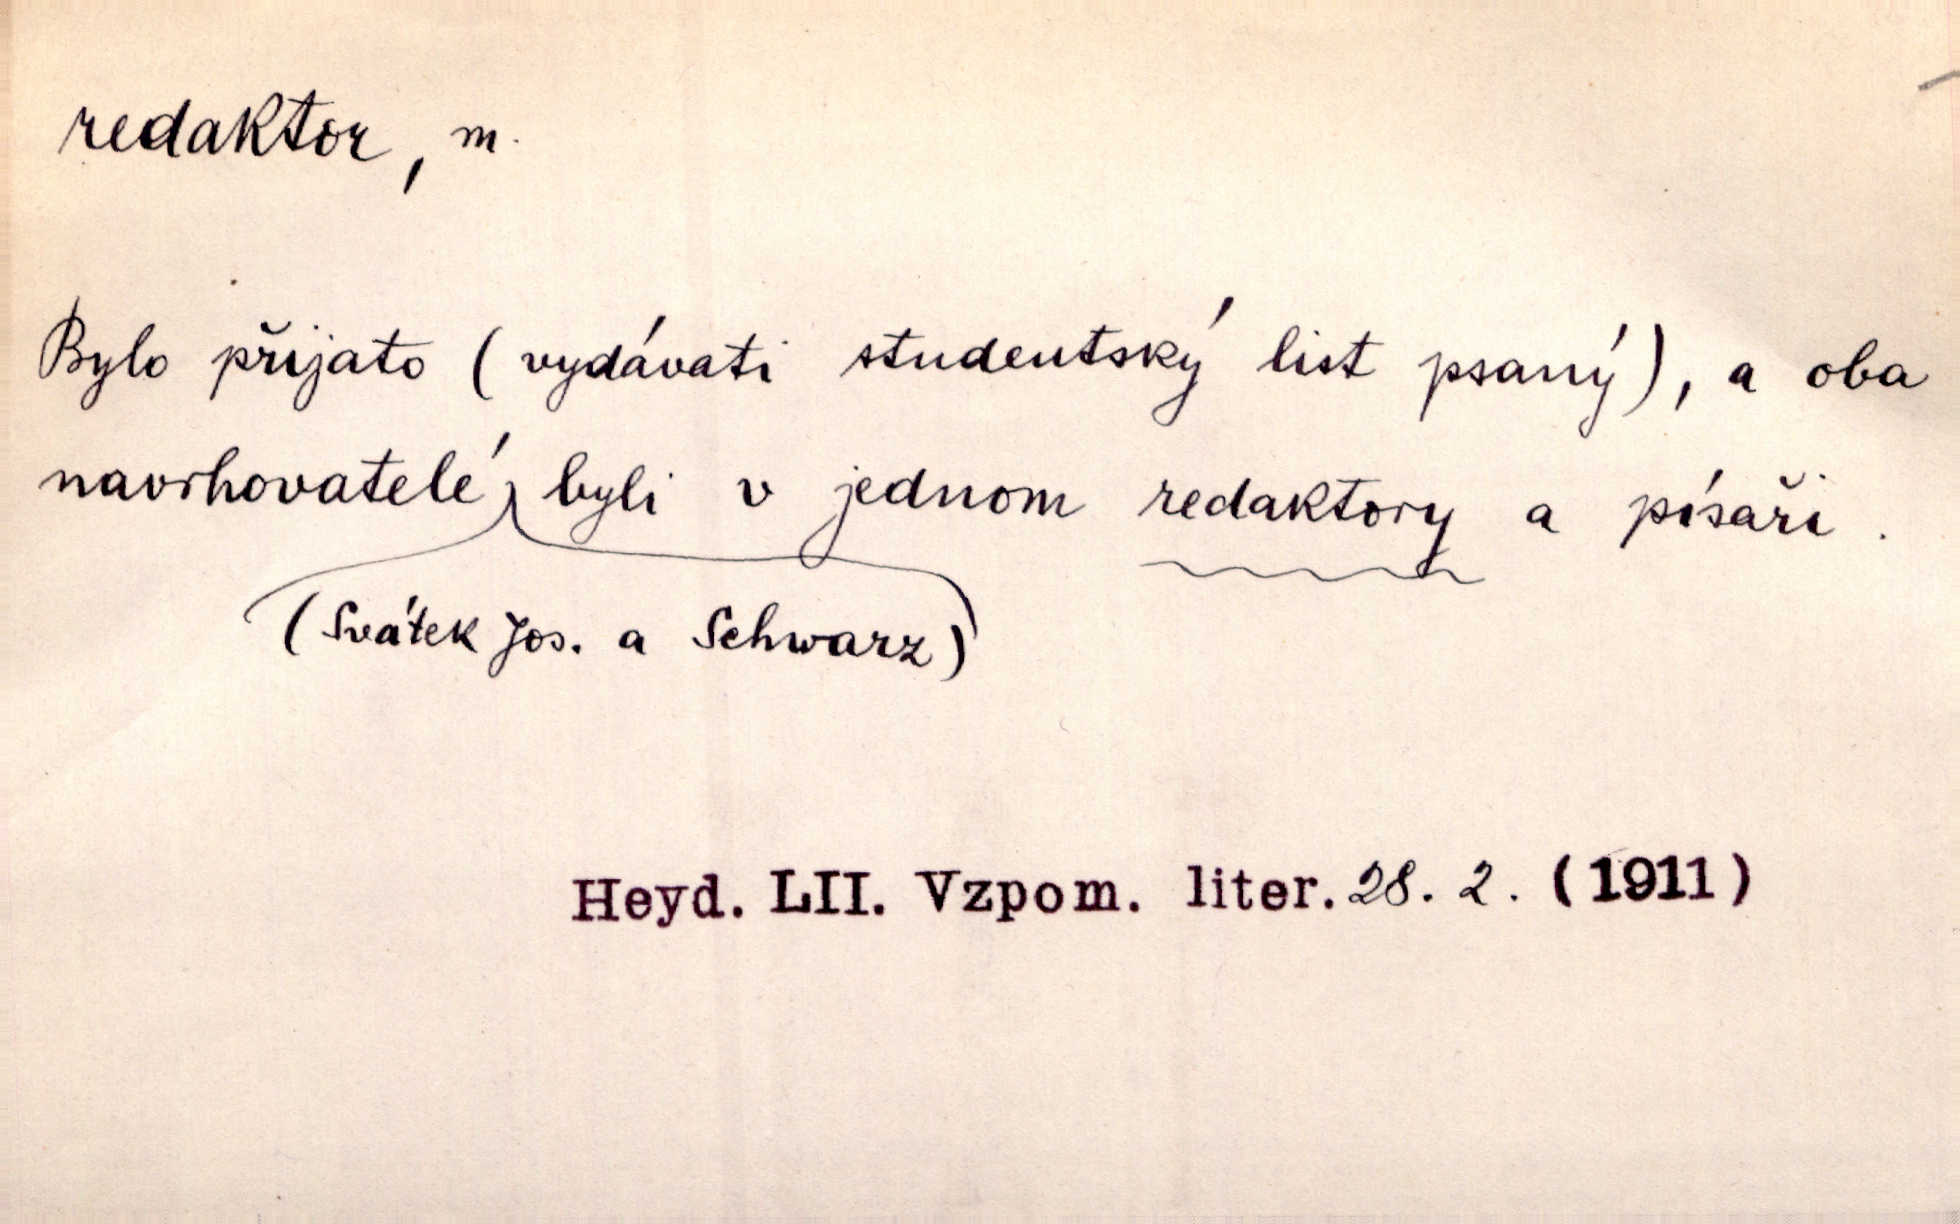 redaktor, m.
Bylo přijato (vydávati studentský list psaný), a oba
navrhovatelé byli v jednom redaktory a písaři.
(Svátek Jos. a Schwarz)
Heyd. LII. Vzpom. liter. 28. 2. (1911)